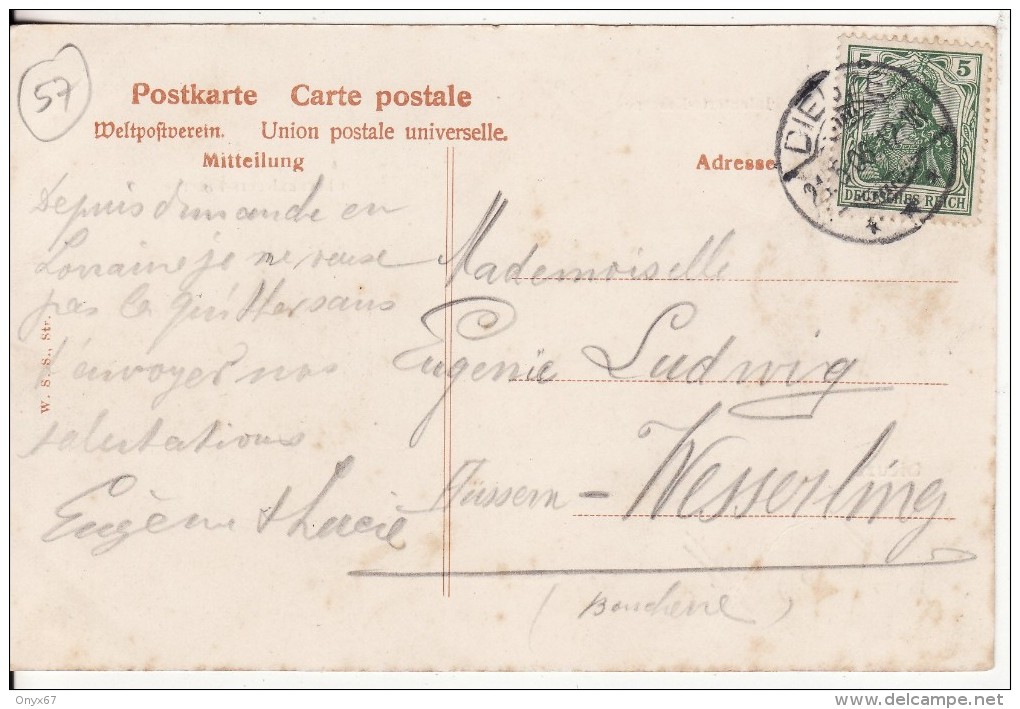 57
Postkarte Carte postale
Weltpostverein. Union postale universelle.
Mitteilung
Adresse
5 5
DEUTSCHES REICH
DIEUZE
Depuis dimanche en
Lorraine je ne veux
pas la quitter sans
t'envoyer nos
salutations
Eugène & Lucie
W. S. S., Str.
Mademoiselle
Eugenie Ludwig
Hüssern - Wesserling
Onyx67
delcampe.net